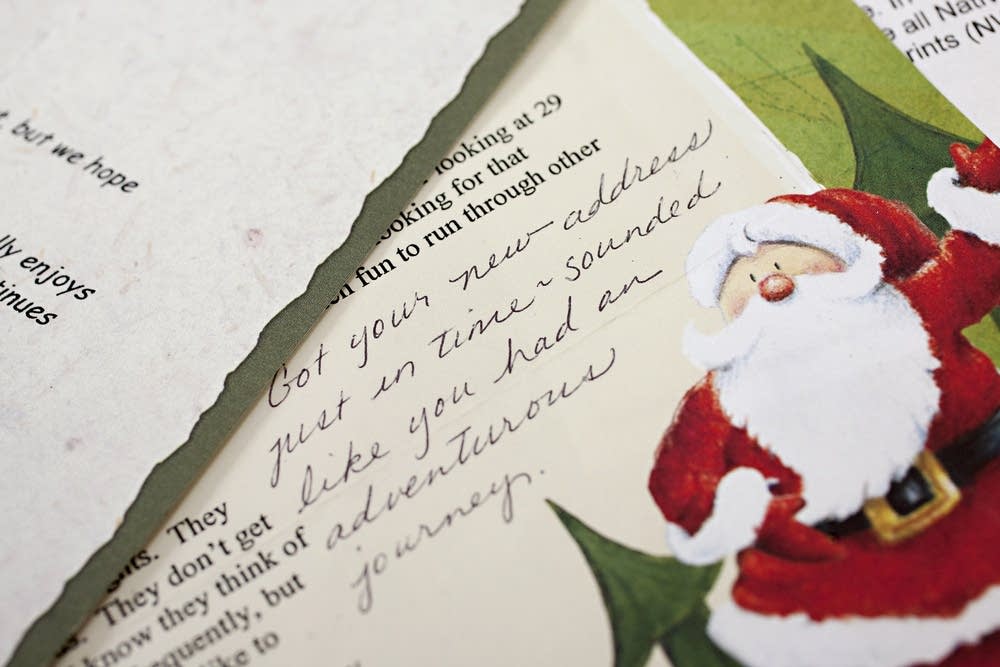 , but we hope
lly enjoys
tinues
looking at 29
ooking for that
fun to run through other
Got your new address
just in time ~ sounded
like you had an
adventurous
journey.
They
They don't get
know they think of
equently, but
ike to
all Nativ
rints (NV